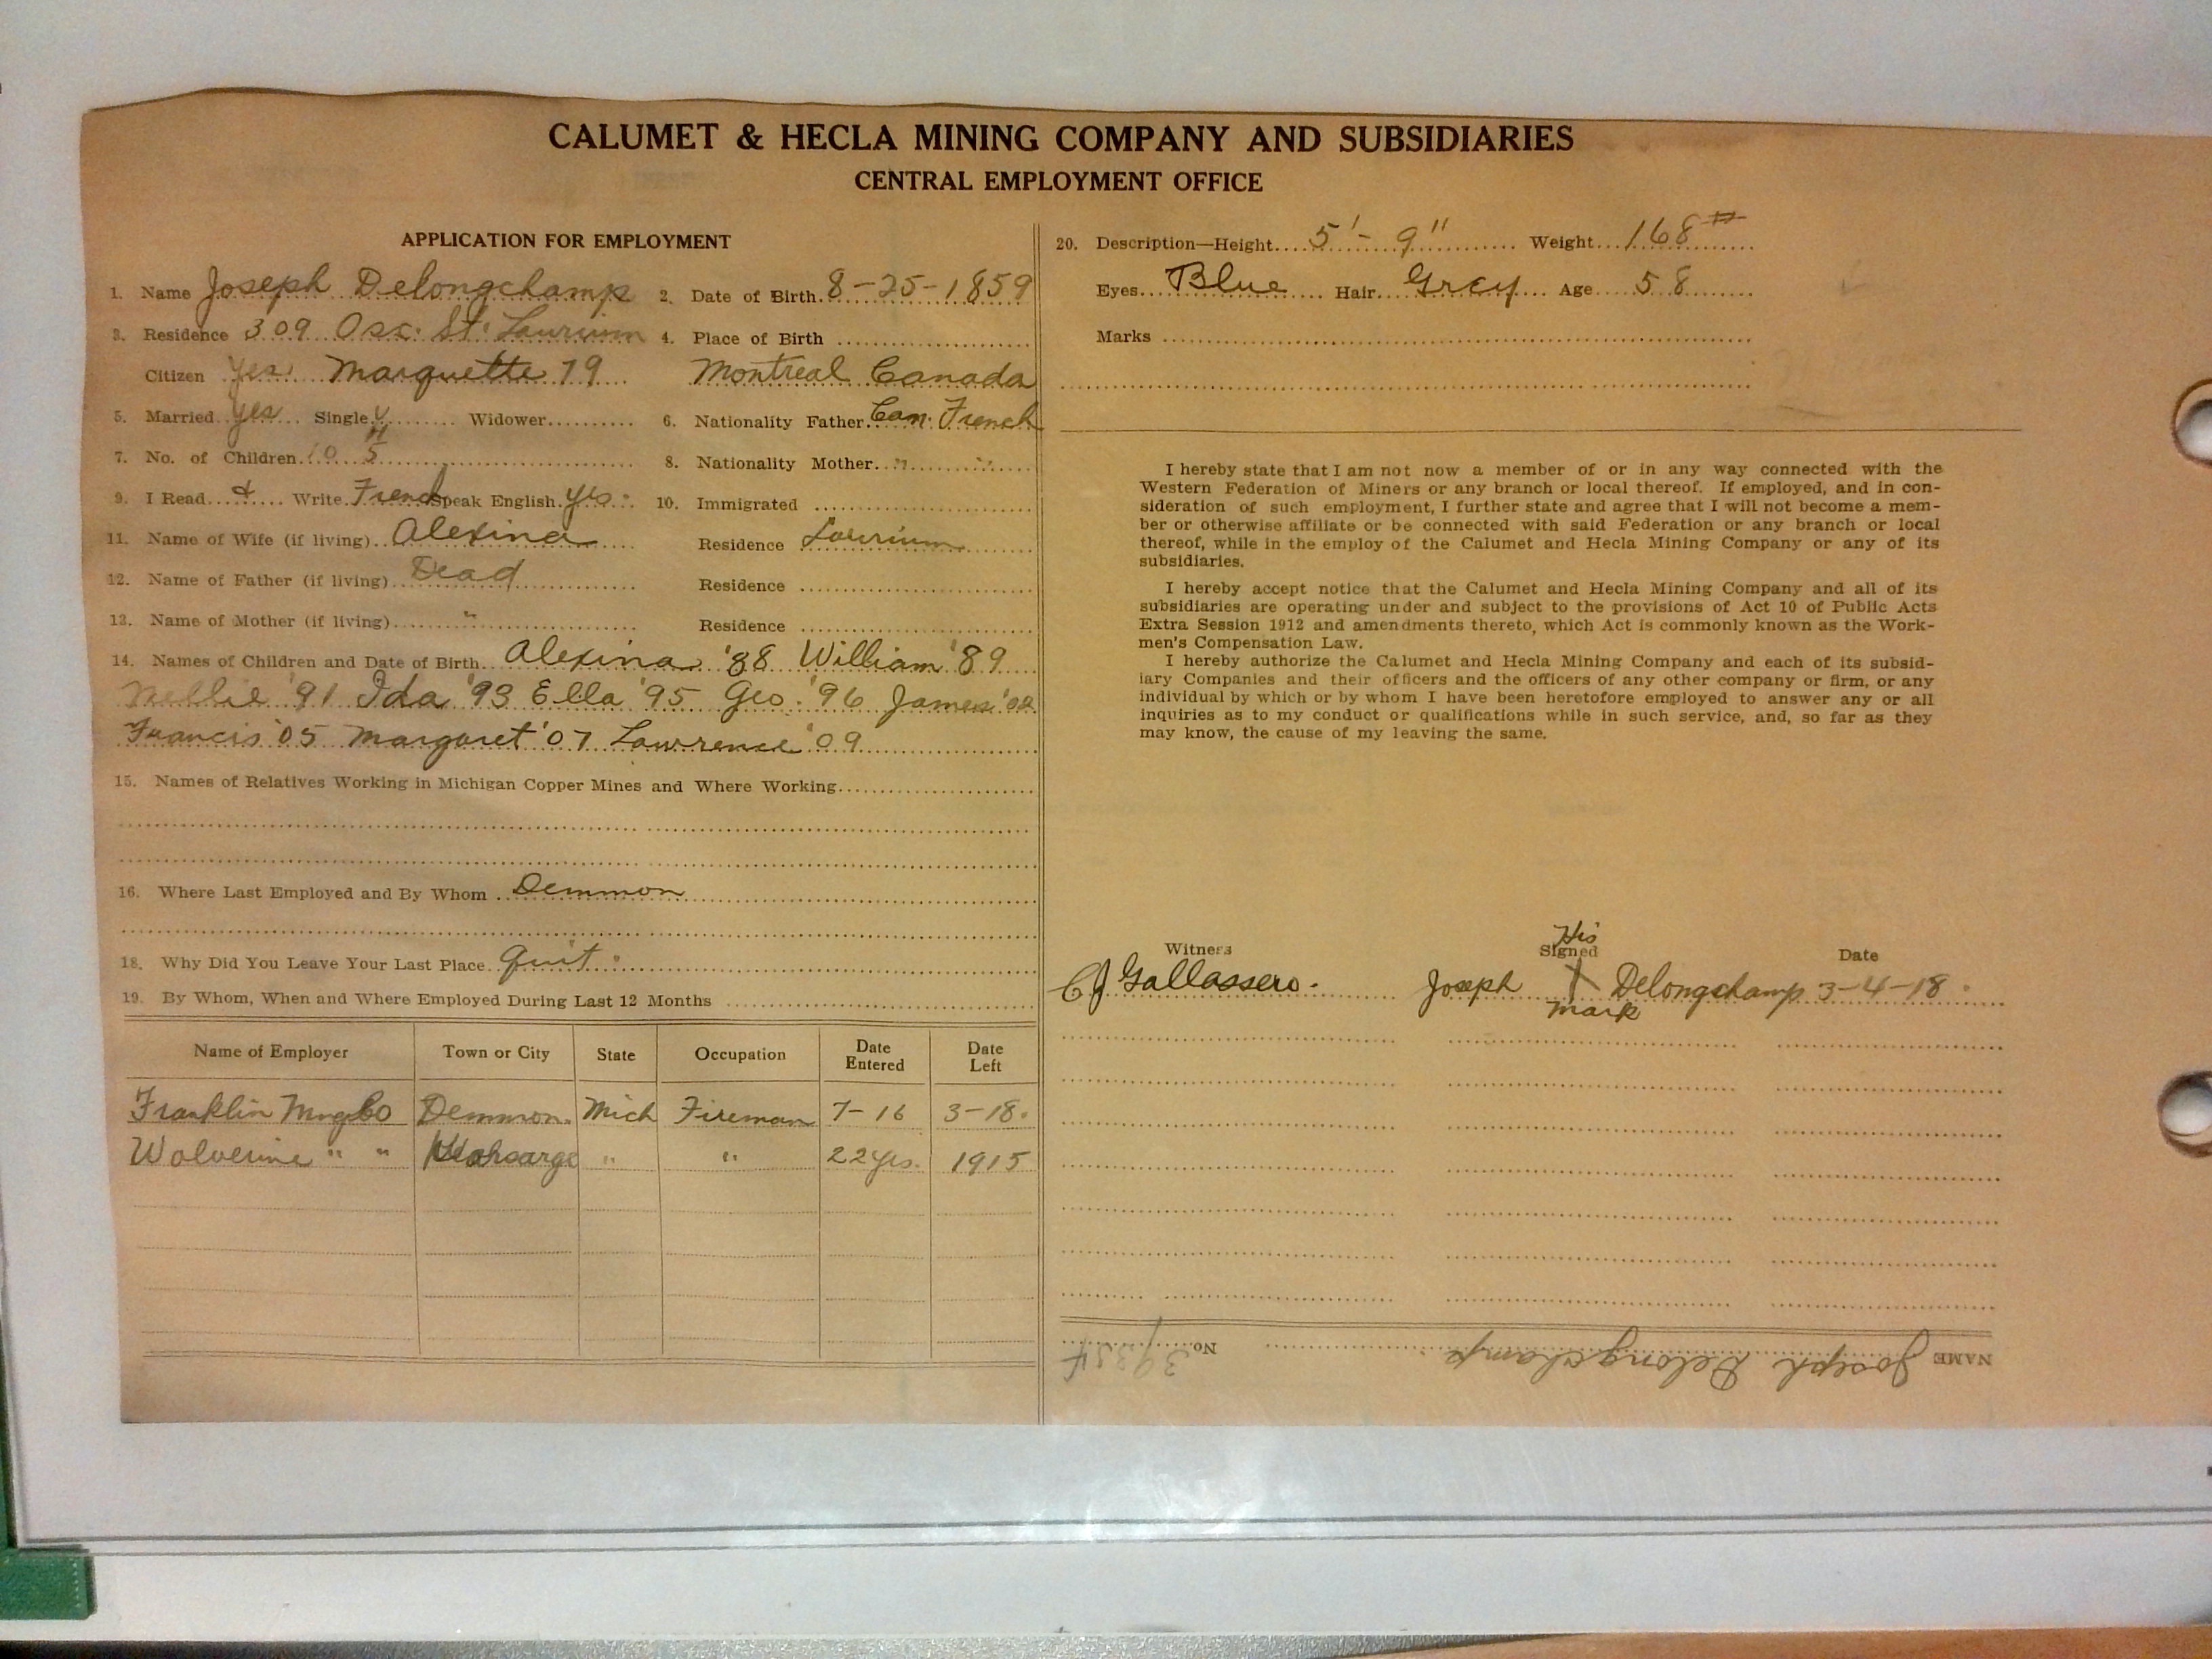 CALUMET & HECLA MINING COMPANY AND SUBSIDIARIES
CENTRAL EMPLOYMENT OFFICE
APPLICATION FOR EMPLOYMENT
1. Name Joseph Delongchamp 2. Date of Birth 8-25-1859
3. Residence 309 Osc. St. Laurium 4. Place of Birth
Citizen Yes Marquette 79 Montreal Canada
5. Married yes Single Widower 6. Nationality Father Can. French
7. No. of Children 10 5 8. Nationality Mother " "
9. I Read & Write French Speak English yes. 10. Immigrated
11. Name of Wife (if living) Alexina Residence Laurium
12. Name of Father (if living) Dead Residence
13. Name of Mother (if living) " Residence
14. Names of Children and Date of Birth Alexina '88 William '89
Nellie '91 Ida '93 Ella '95 Geo. '96 James
Francis '05 Margaret '07 Lawrence '09
15. Names of Relatives Working in Michigan Copper Mines and Where Working
16. Where Last Employed and By Whom Demmon
18. Why Did You Leave Your Last Place Quit
19. By Whom, When and Where Employed During Last 12 Months
Name of Employer Town or City State Occupation Date Entered Date Left
Franklin Mng Co Demmon. Mich Fireman 7-16 3-18.
Wolverine " " Keahsarge " " 22 yrs. 1915
20. Description—Height 5'-9" Weight 168#
Eyes Blue Hair Grey Age 58
Marks
I hereby state that I am not now a member of or in any way connected with the
Western Federation of Miners or any branch or local thereof. If employed, and in con-
sideration of such employment, I further state and agree that I will not become a mem-
ber or otherwise affiliate or be connected with said Federation or any branch or local
thereof, while in the employ of the Calumet and Hecla Mining Company or any of its
subsidiaries.
I hereby accept notice that the Calumet and Hecla Mining Company and all of its
subsidiaries are operating under and subject to the provisions of Act 10 of Public Acts
Extra Session 1912 and amendments thereto, which Act is commonly known as the Work-
men's Compensation Law.
I hereby authorize the Calumet and Hecla Mining Company and each of its subsid-
iary Companies and their officers and the officers of any other company or firm, or any
individual by which or by whom I have been heretofore employed to answer any or all
inquiries as to my conduct or qualifications while in such service, and, so far as they
may know, the cause of my leaving the same.
His
Witness Signed Date
C J Gallassero. Joseph X Delongchamp 3-4-18
Mark
NAME Joseph Delongchamp No.